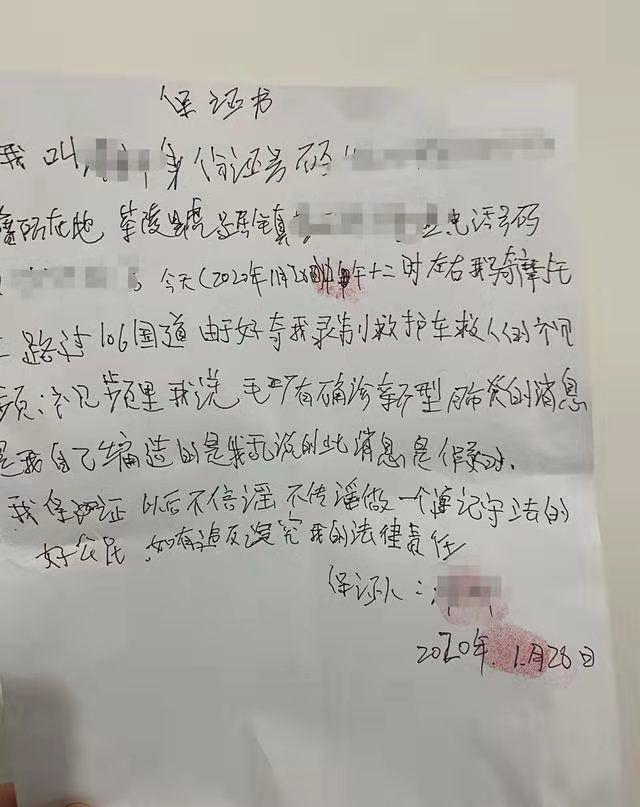 保证书
我叫,身份证号码
所在地 茶陵县虎踞镇 电话号码
今天(2020年1月28日中午十二时左右我骑摩托
路过106国道由于好奇我录制救护车救人的视
频:视频里我说毛坪有确诊新型肺炎的消息
是我自己编造的是我乱说的此消息是假的.
我保证以后不信谣不传谣做一个遵纪守法的
好公民.如有违反追究我的法律责任
保证人:
2020年.1月28日